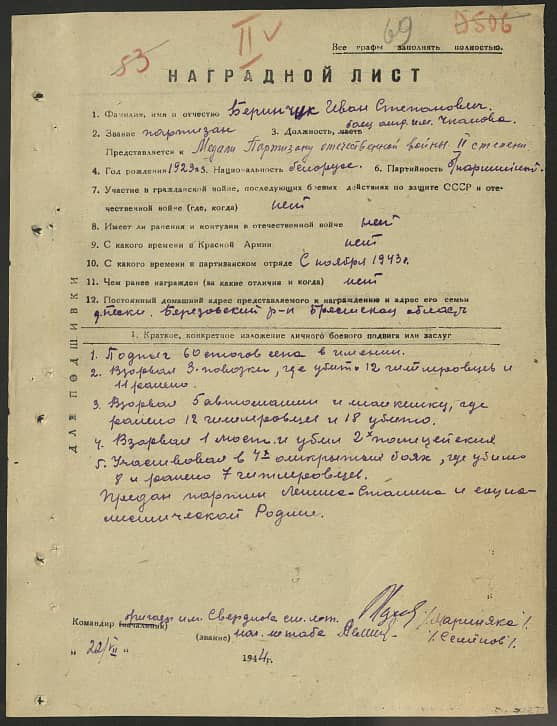 53
II v
69
Все графы заполнять полностью.
НАГРАДНОЙ ЛИСТ
1. Фамилия, имя и отчество Беринчук Иван Степанович.
2. Звание партизан 3. Должность, часть боец отр. им. Чкалова.
Представляется к Медали Партизану отечественной войны II степени
4. Год рождения 1923 г. 5. Национальность белорус. 6. Партийность
7. Участие в гражданской войне, последующих боевых действиях по защите СССР и оте-
чественной войне (где, когда) нет
8. Имеет ли ранения и контузии в отечественной войне нет
9. С какого времени в Красной Армии нет
10. С какого времени в партизанском отряде С ноября 1943 г.
11. Чем ранее награжден (за какие отличия и когда) нет
12. Постоянный домашний адрес представляемого к награждению и адрес его семьи
д. Пески. Березовский р-н Брестской область
ДЛЯ ПОДШИВКИ
1. Краткое, конкретное изложение личного боевого подвига или заслуг
1. Поджег 60 стогов сена в имении.
2. Взорвал 3 повозки, где убито 12 гитлеровцев и
11 ранено.
3. Взорвал 5 автомашин и танкетку, где
ранено 12 гитлеровцев и 18 убито.
4. Взорвал 1 мост и убил 2х полицейских
5. Участвовал в 4х открытых боях, где убито
8 и ранено 7 гитлеровцев.
Предан партии Ленина-Сталина и социа-
листической Родине.
Командир (начальник) бригады им. Свердлова
(звание) нач. штаба /Семёнов/.
„ 22/VII " 1944 г.